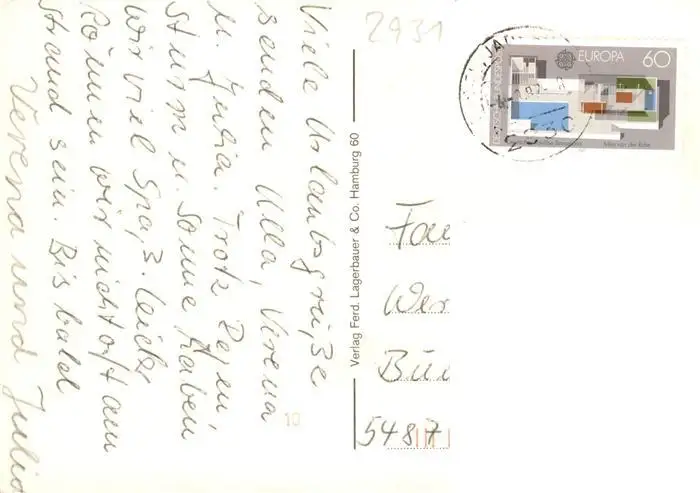 Viele Urlaubsgrüße
senden Ulla, Virena
u. Julia. Trotz Regen
Sturm u. Sonne haben
wir viel Spaß. Leider
können wir nicht oft am
Strand sein. Bis bald
Verena und Julia
2931
Verlag Ferd. Lagerbauer & Co. Hamburg 60
10
EUROPA 60
DEUTSCHE BUNDESPOST
Mies van der Rohe
Fam
Wer
Bün
5487